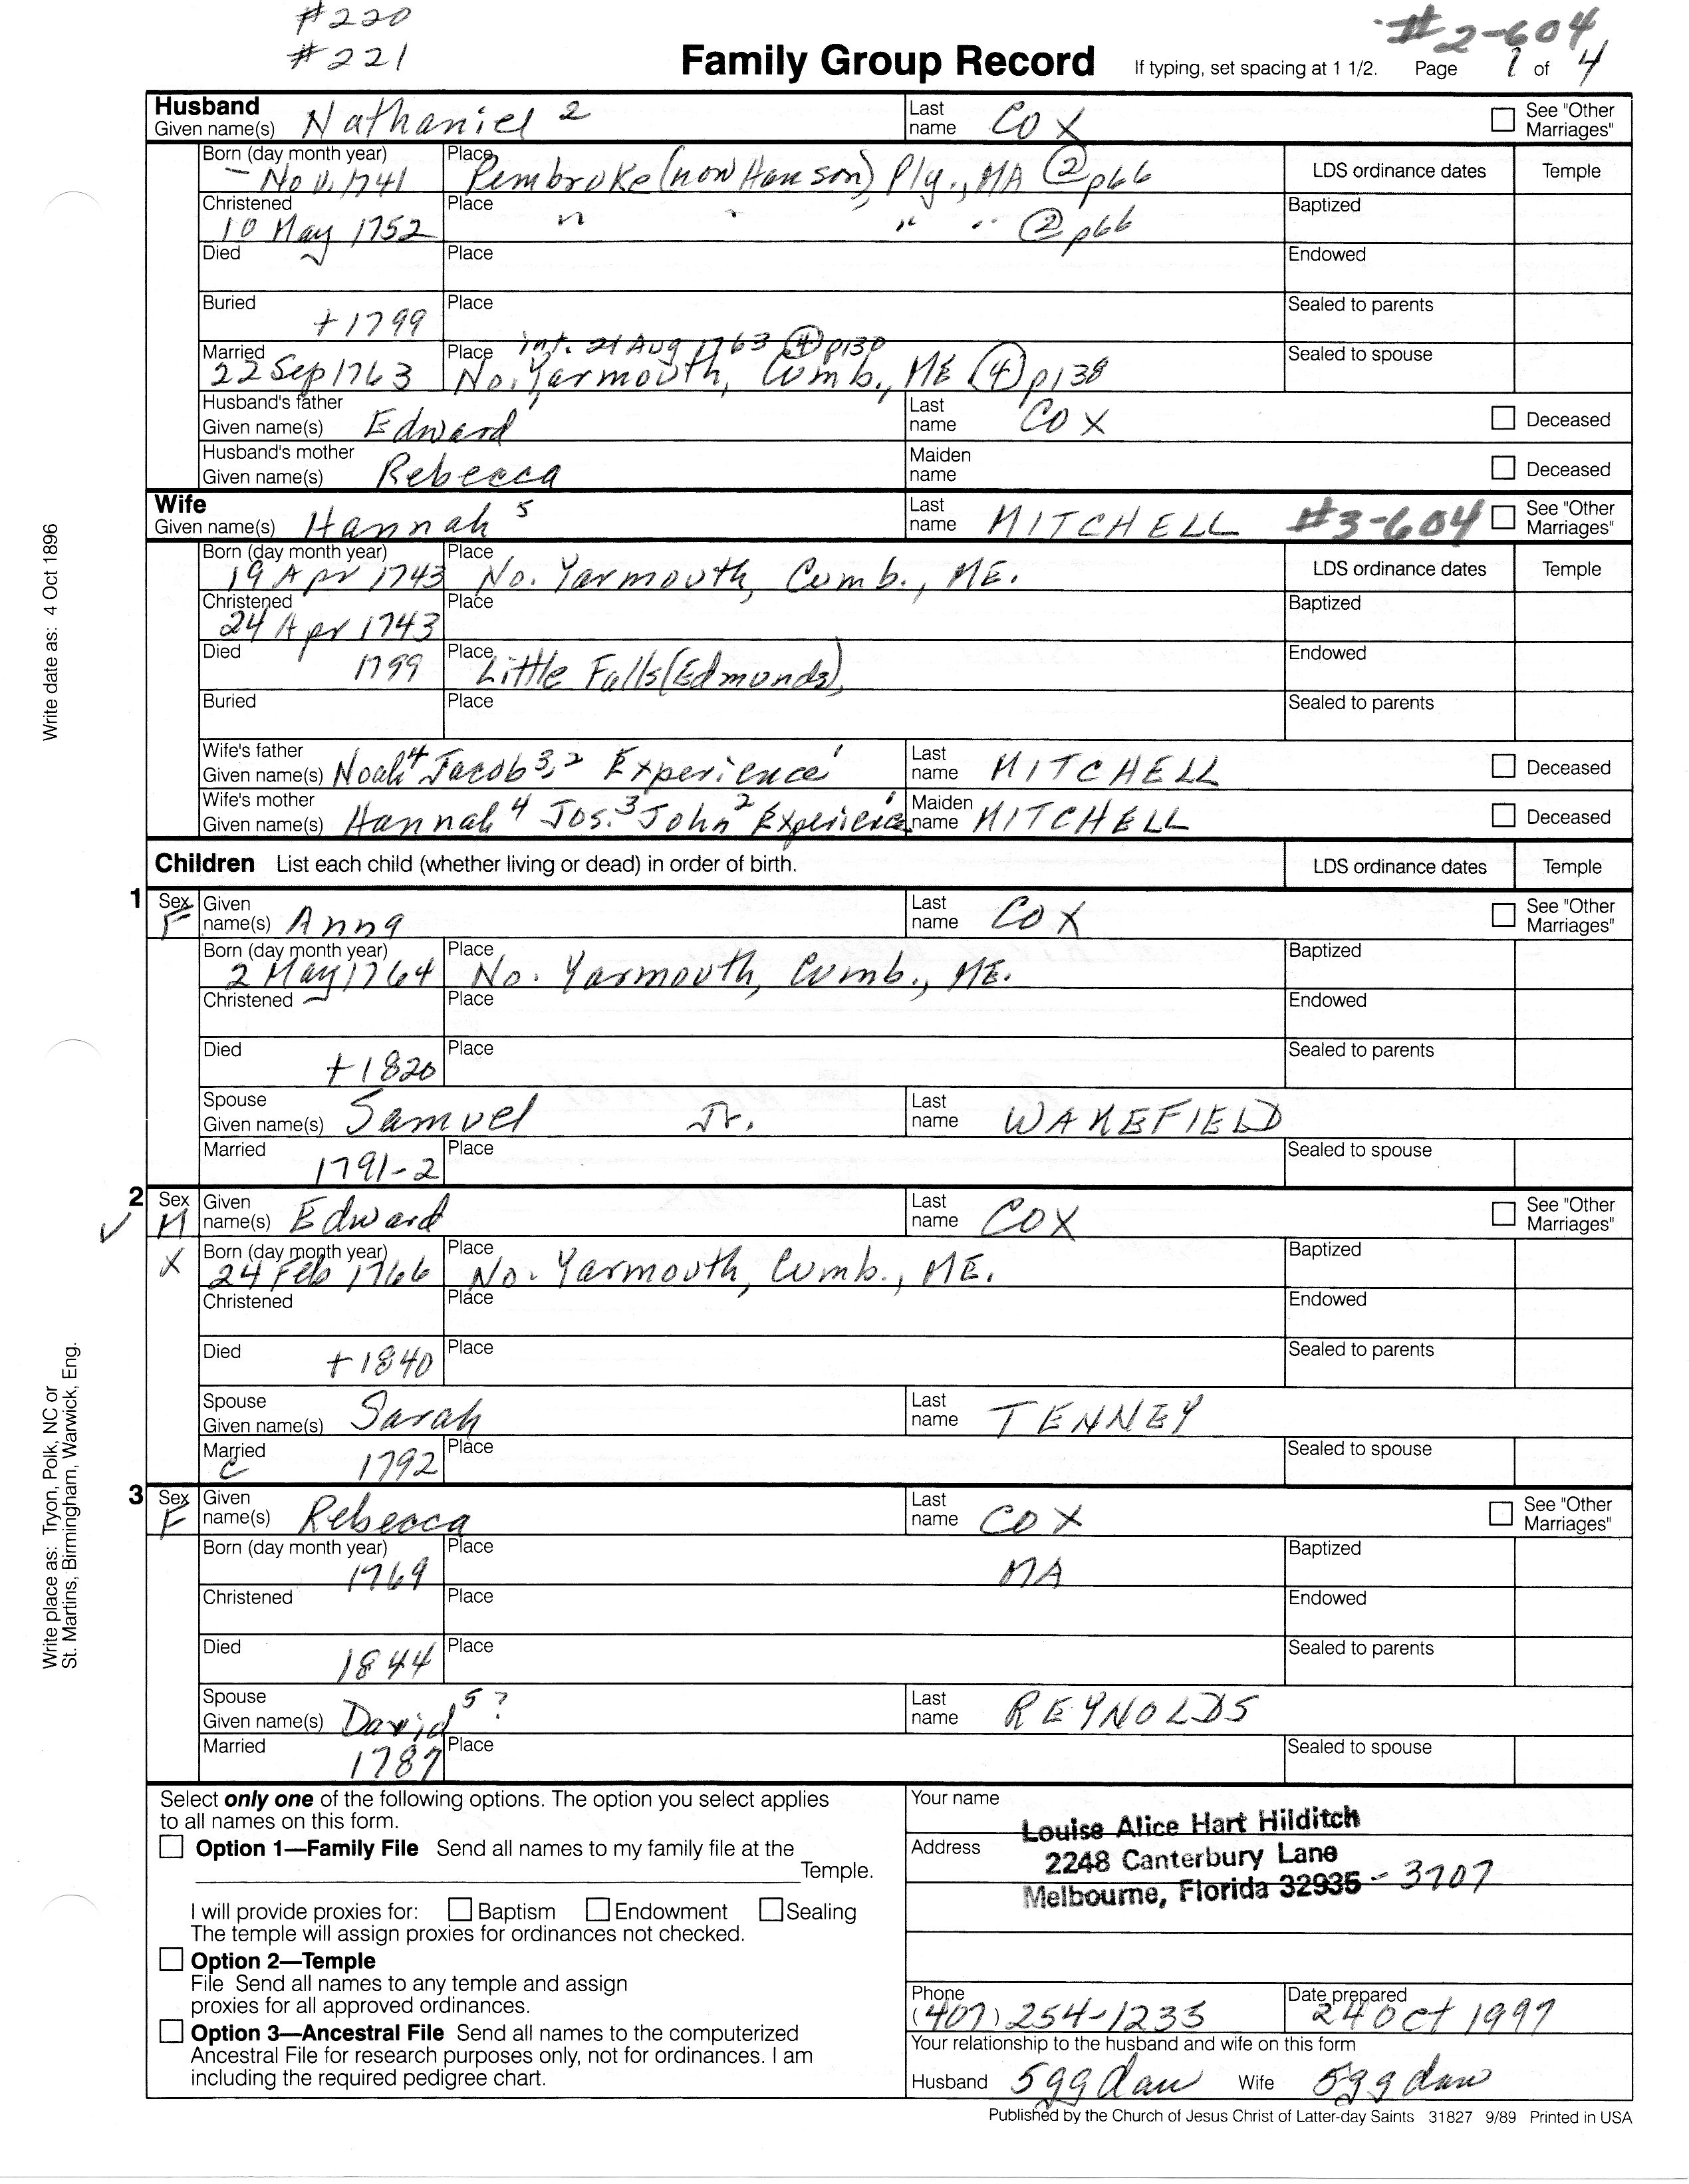 #220
#221
#2-604
Family Group Record If typing, set spacing at 1 1/2. Page 1 of 4
Husband
Given name(s) Nathaniel 2 Last name COX See "Other Marriages"
Born (day month year) Place LDS ordinance dates Temple
1741 Pembroke (now Hanson), Ply., MA ② p66
Christened Place Baptized
10 May 1752 " " " " ② p66
Died Place Endowed
Buried Place Sealed to parents
+1799
int. 21 Aug 1763 ④ p130
Married Place Sealed to spouse
22 Sep 1763 No. Yarmouth, Cumb., ME ④ p138
Husband's father
Given name(s) Edward Last name COX Deceased
Husband's mother
Given name(s) Rebecca Maiden name Deceased
Wife
Given name(s) Hannah 5 Last name MITCHELL #3-604 See "Other Marriages"
Born (day month year) Place LDS ordinance dates Temple
19 Apr 1743 No. Yarmouth, Cumb., ME.
Christened Place Baptized
24 Apr 1743
Died Place Endowed
1799 Little Falls (Edmunds),
Buried Place Sealed to parents
Wife's father
Given name(s) Noah 4 Jacob 3, 2 Experience 1 Last name MITCHELL Deceased
Wife's mother
Given name(s) Hannah 4 Jos. 3 John 2 Experience 1 Maiden name MITCHELL Deceased
Children List each child (whether living or dead) in order of birth. LDS ordinance dates Temple
1 Sex F Given name(s) Anna Last name COX See "Other Marriages"
Born (day month year) Place Baptized
2 May 1764 No. Yarmouth, Cumb., ME.
Christened Place Endowed
Died Place Sealed to parents
+1820
Spouse
Given name(s) Samuel Jr. Last name WAKEFIELD
Married Place Sealed to spouse
1791-2
2 Sex M Given name(s) Edward Last name COX See "Other Marriages"
✓
X Born (day month year) Place Baptized
24 Feb 1766 No. Yarmouth, Cumb., ME.
Christened Place Endowed
Died Place Sealed to parents
+1840
Spouse
Given name(s) Sarah Last name TENNEY
Married Place Sealed to spouse
c 1792
3 Sex F Given name(s) Rebecca Last name COX See "Other Marriages"
Born (day month year) Place Baptized
1769 MA
Christened Place Endowed
Died Place Sealed to parents
1844
Spouse
Given name(s) David 5 ? Last name REYNOLDS
Married Place Sealed to spouse
1787
Select only one of the following options. The option you select applies
to all names on this form.
Option 1—Family File Send all names to my family file at the
Temple.
I will provide proxies for: Baptism Endowment Sealing
The temple will assign proxies for ordinances not checked.
Option 2—Temple
File Send all names to any temple and assign
proxies for all approved ordinances.
Option 3—Ancestral File Send all names to the computerized
Ancestral File for research purposes only, not for ordinances. I am
including the required pedigree chart.
Your name
Louise Alice Hart Hilditch
Address
2248 Canterbury Lane
Melbourne, Florida 32935 - 3707
Phone Date prepared
(407) 254-1233 24 Oct 1997
Your relationship to the husband and wife on this form
Husband 5ggdau Wife 5ggdau
Published by the Church of Jesus Christ of Latter-day Saints 31827 9/89 Printed in USA
Write date as: 4 Oct 1896
Write place as: Tryon, Polk, NC or
St. Martins, Birmingham, Warwick, Eng.